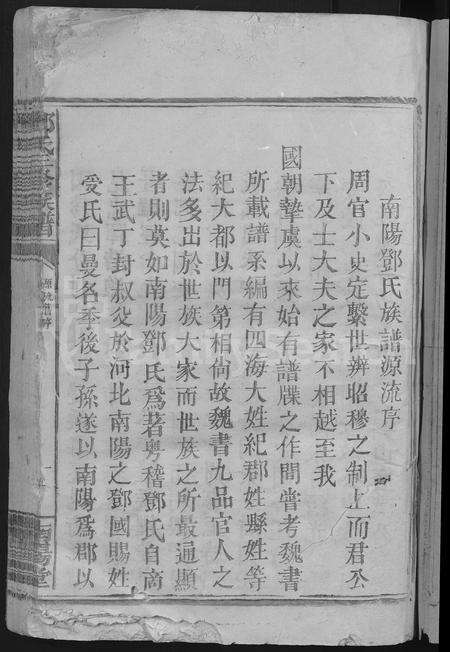 南陽鄧氏族譜源流序
周官小史定繫世辨昭穆之制上而君公
下及士大夫之家不相越至我
國朝摯虞以來始有譜牒之作間嘗考魏書
所載譜系編有四海大姓紀郡姓縣姓等
紀大都以門第相尚故魏書九品官人之
法多出於世族大家而世族之所最通顯
者則莫如南陽鄧氏爲著粵稽鄧氏自商
王武丁封叔父於河北南陽之鄧國賜姓
受氏曰曼名季後子孫遂以南陽爲郡以
鄧氏三修族譜
源流譜序